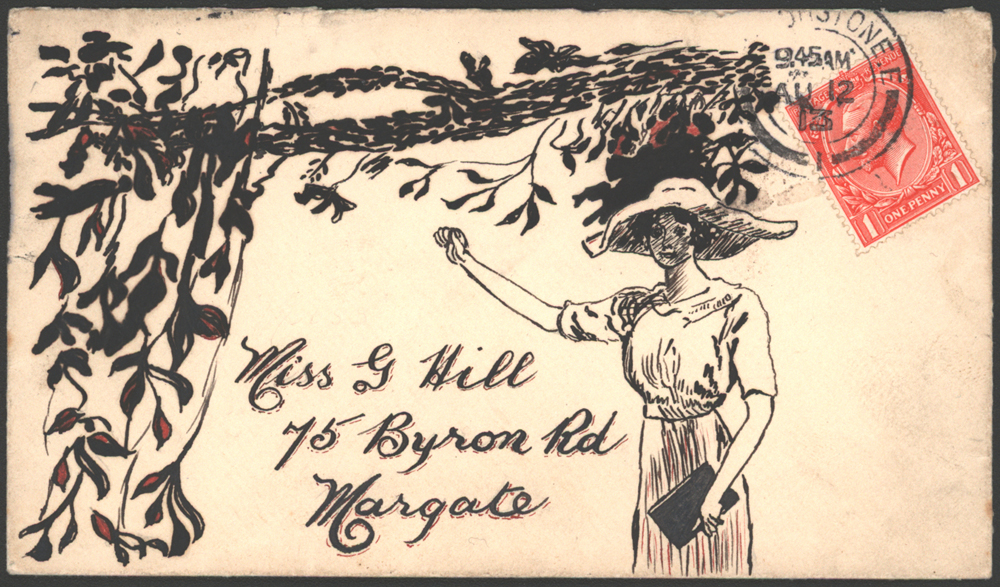 9.45 AM
AU 12
13
1 ONE PENNY 1
Miss G Hill
75 Byron Rd
Margate